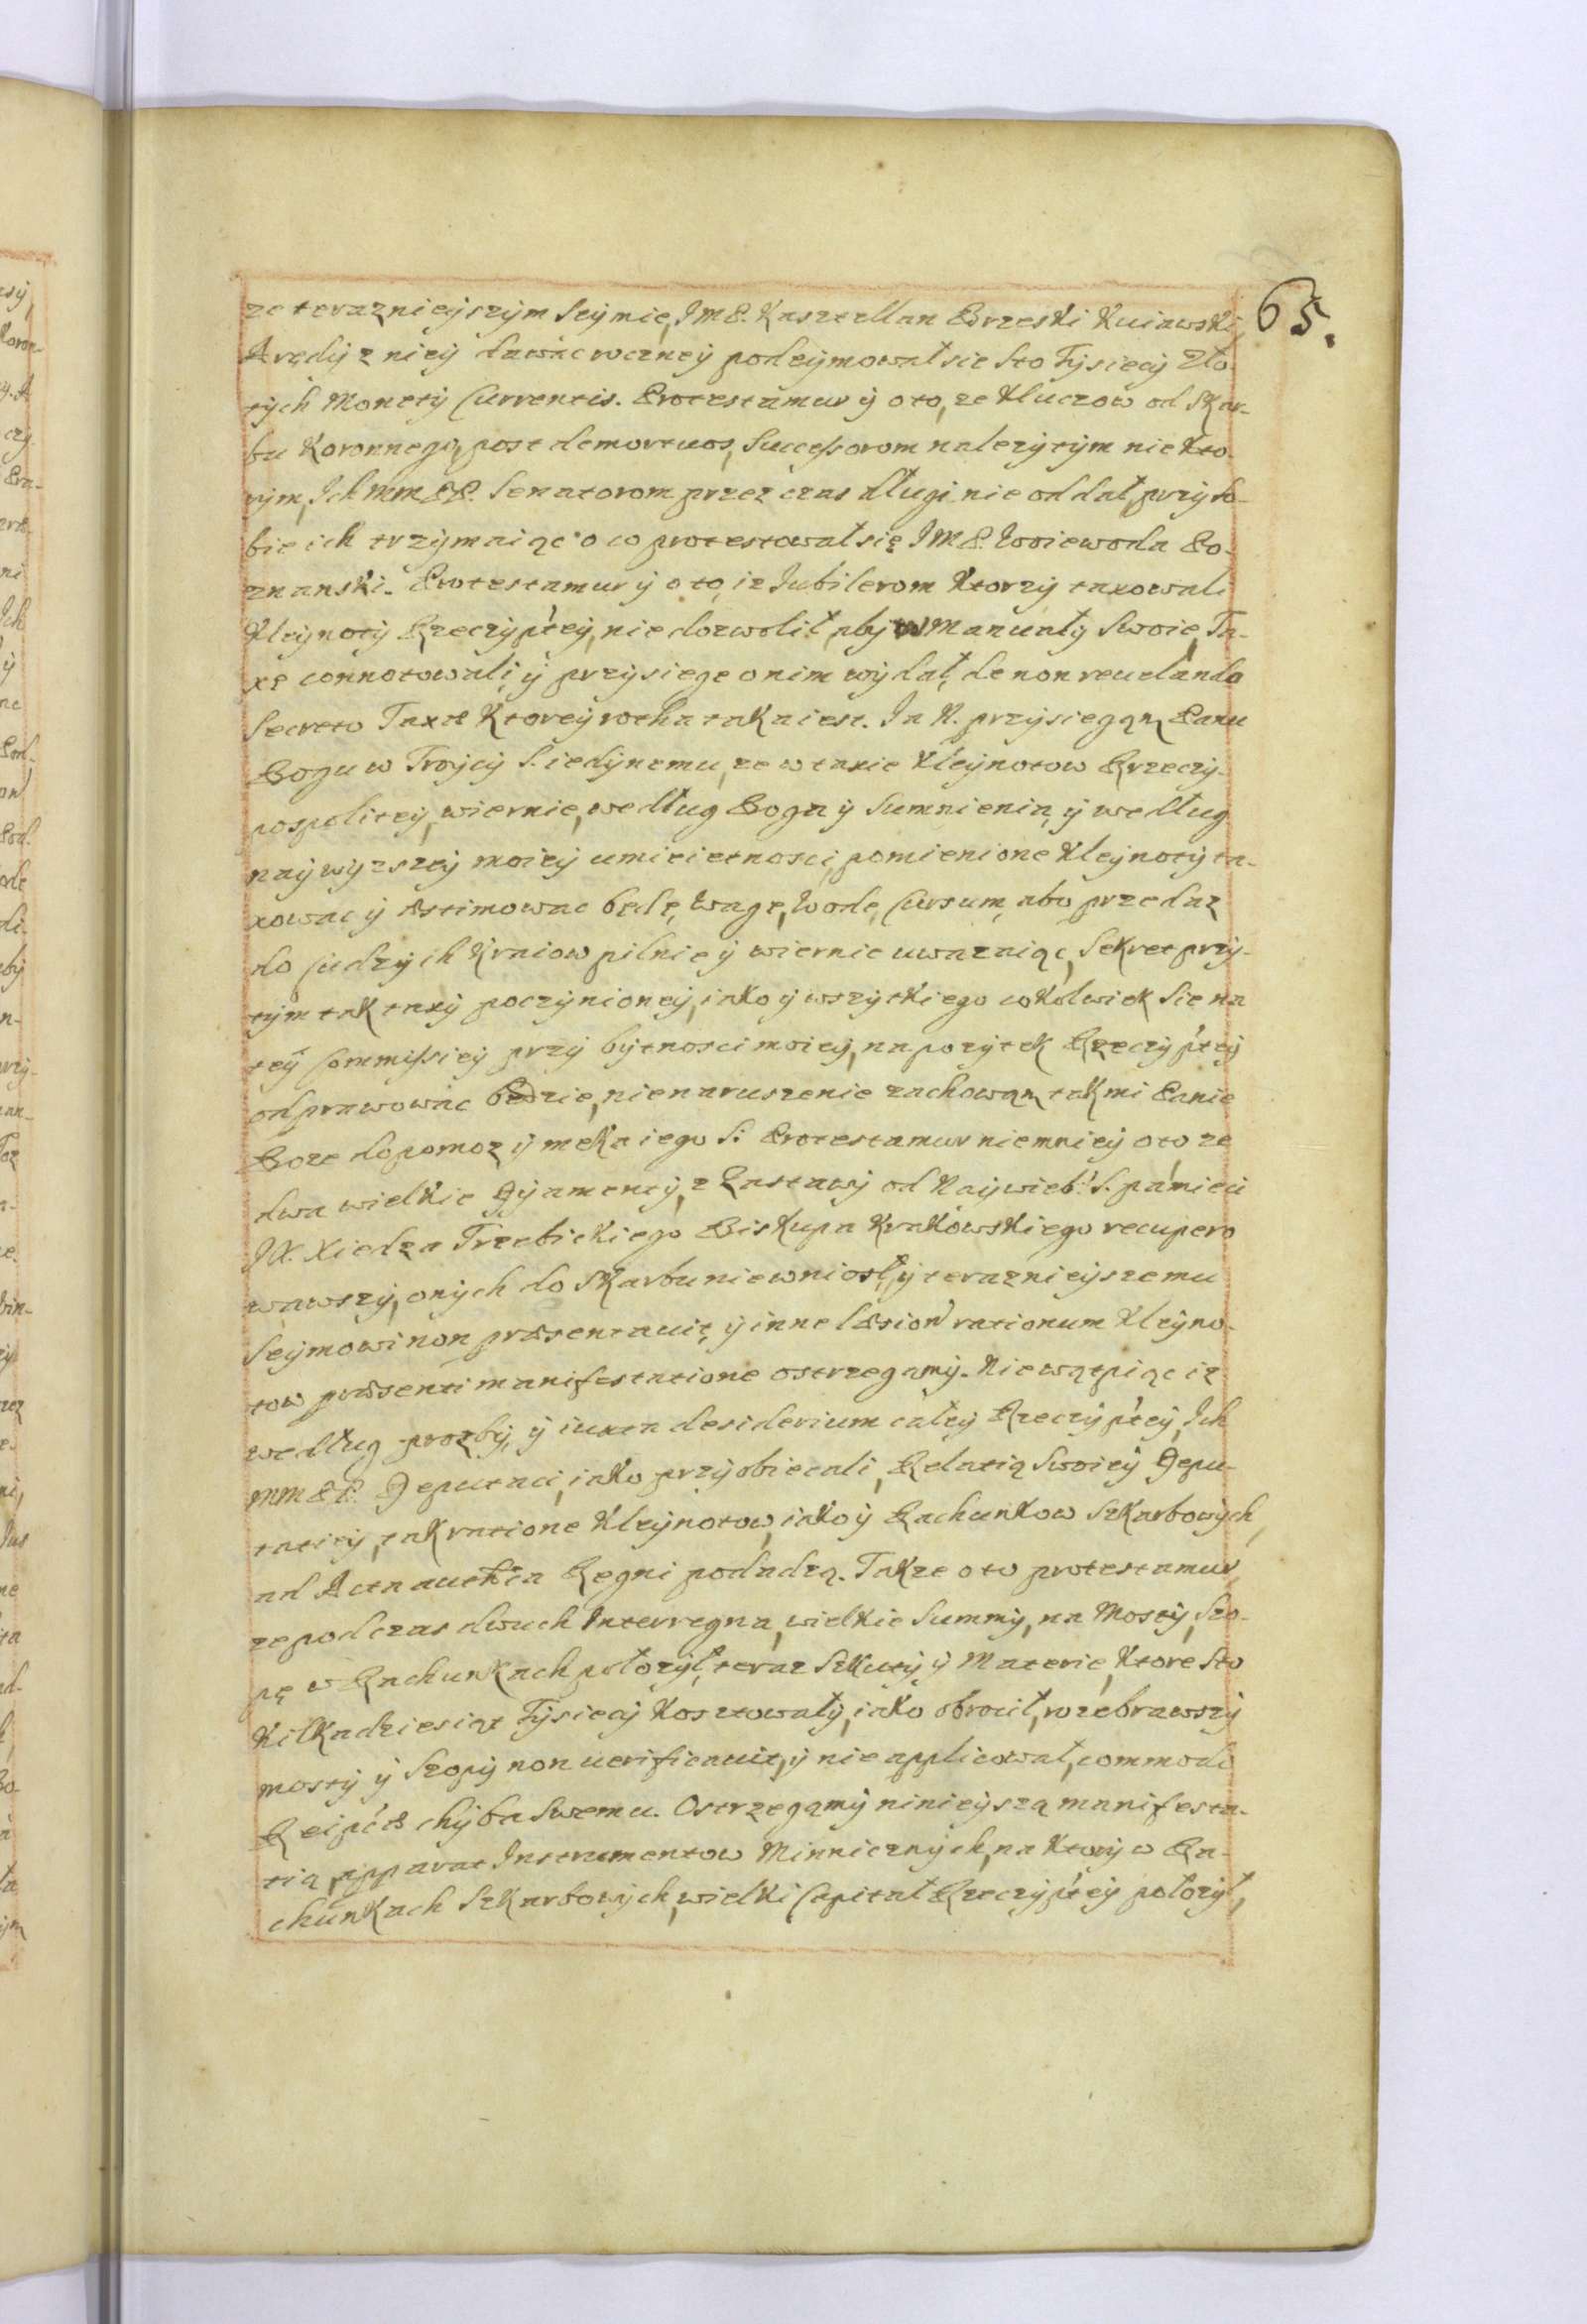 65.
ze teraznieyszym Seymie, JM P. Kasztellan Brzeski Kuiawski,
Arędy z niey dawac roczney podeymował sie Sto Tysiecy Zło-
tych Monety Currentis. Protestamur y o to, ze Kluczow od Skar-
bu Koronnego, post demortuos, Successorom nalezytym niekto-
rym, Ich MM PP. Senatorom przez czas długi nie oddał, przy So-
bie ich trzymaiąc o co protestował się JM P. Woiewoda Po-
znanski. Protestamur y o to, iz Jubilerom Ktorzy taxowali
Kleynoty Rzeczyptey, nie dozwolił, aby w Manuały Swoie, Ta-
xę connotowali, y przysiege onim wydał, de non reuelando
Secreto Taxæ Ktorey rotha taka iest. Ja N. przysiegąm Panu
Bogu w Troycy S. iedynemu, ze w taxie Kleynotow Rzeczy-
pospolitey, wiernie, według Boga y Sumnienia, y według
naywyzszey moiey umieietnosci, pomienione Kleynoty ta-
xowac y æstimowac będę, Wagę, Wodę, Cursum, abo przedaz
do Cudzych Kraiow pilnie y wiernie uwazaiąc, Sekret przy-
tym tak taxy poczynioney, iako y wszytkiego cokolwiek Sie na
tey Commissiey przy bytnosci moiey, na pozytek Rzeczyptey
odprawowac będzie, nienaruszenie zachowąm, tak mi Panie
Boze dopomoz y meka iego S. Protestamur niemniey o to ze
dwa wielkie Dyamenty, z Zastawy od Naywieb: S. pamieci
JX. Xiedza Trzebickiego Biskupa Krakowskiego recupero
wawszy, onych do Skarbu niewniosł, y teraznieyszemu
Seymowi non præsentauit, y inne læsion rationum Kleyno-
tow præsenti manifestatione ostrzegamy. Niewątpiąc iz
według prozby, y iuxta desiderium całey Rzeczyptey, Ich
MM PP. Deputaci, iako przyobiecali, Relatią Swoiey Depu-
tatiey, tak ratione Kleynotow, iako y Rachunkow Szkarbowych,
ad Acta authea Regni podadzą. Takze o to protestamur,
ze podczas dwuch Interregna, wielkie Summy, na Mosty, Szo-
pę w Rachunkach połozył, teraz Szkuty y Materie, Ktore Sto
Kilkadziesiąt Tysiecy Kosztowały, iako obrocił, rozebrawszy
mosty y Szopy non uerificauit, y nie applicował, commodo
Reipcæ chyba Swemu. Ostrzegąmy ninieyszą manifesta-
tią, apparat Instrumentow Minnicznych, na Ktory w Ra-
chunkach Szkarbowych, wielki Capitał Rzeczyptey połozył,